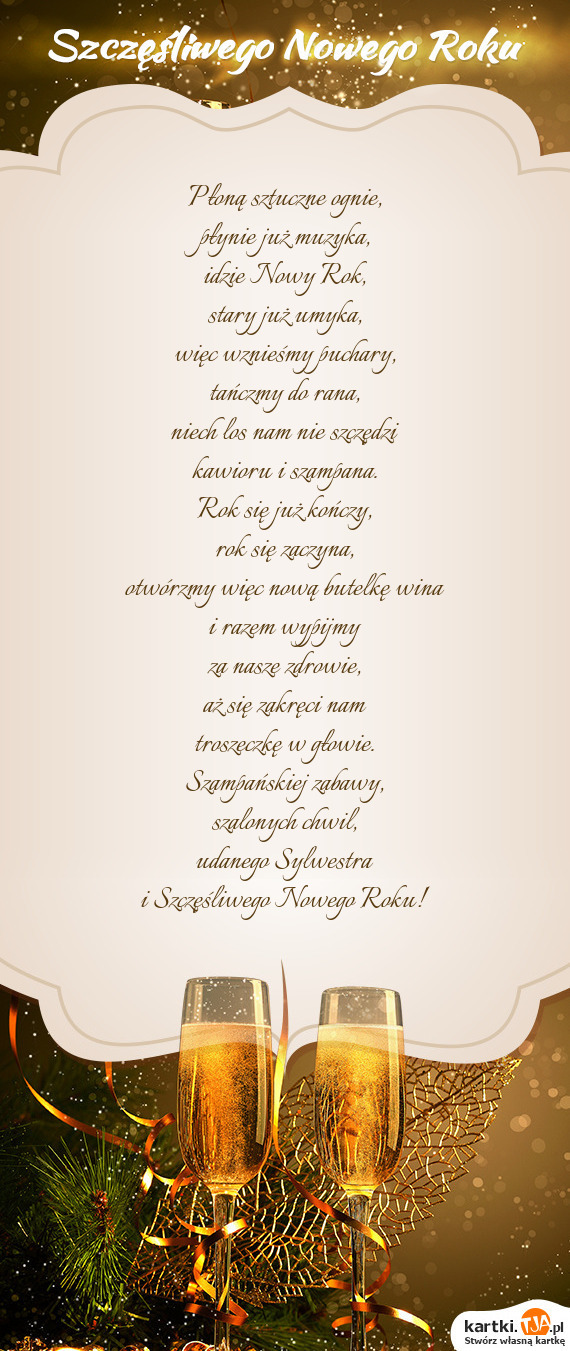 Szczęśliwego Nowego Roku
Płoną sztuczne ognie,
płynie już muzyka,
idzie Nowy Rok,
stary już umyka,
więc wznieśmy puchary,
tańczmy do rana,
niech los nam nie szczędzi
kawioru i szampana.
Rok się już kończy,
rok się zaczyna,
otwórzmy więc nową butelkę wina
i razem wypijmy
za nasze zdrowie,
aż się zakręci nam
troszeczkę w głowie.
Szampańskiej zabawy,
szalonych chwil,
udanego Sylwestra
i Szczęśliwego Nowego Roku!
kartki.TJA.pl
Stwórz własną kartkę